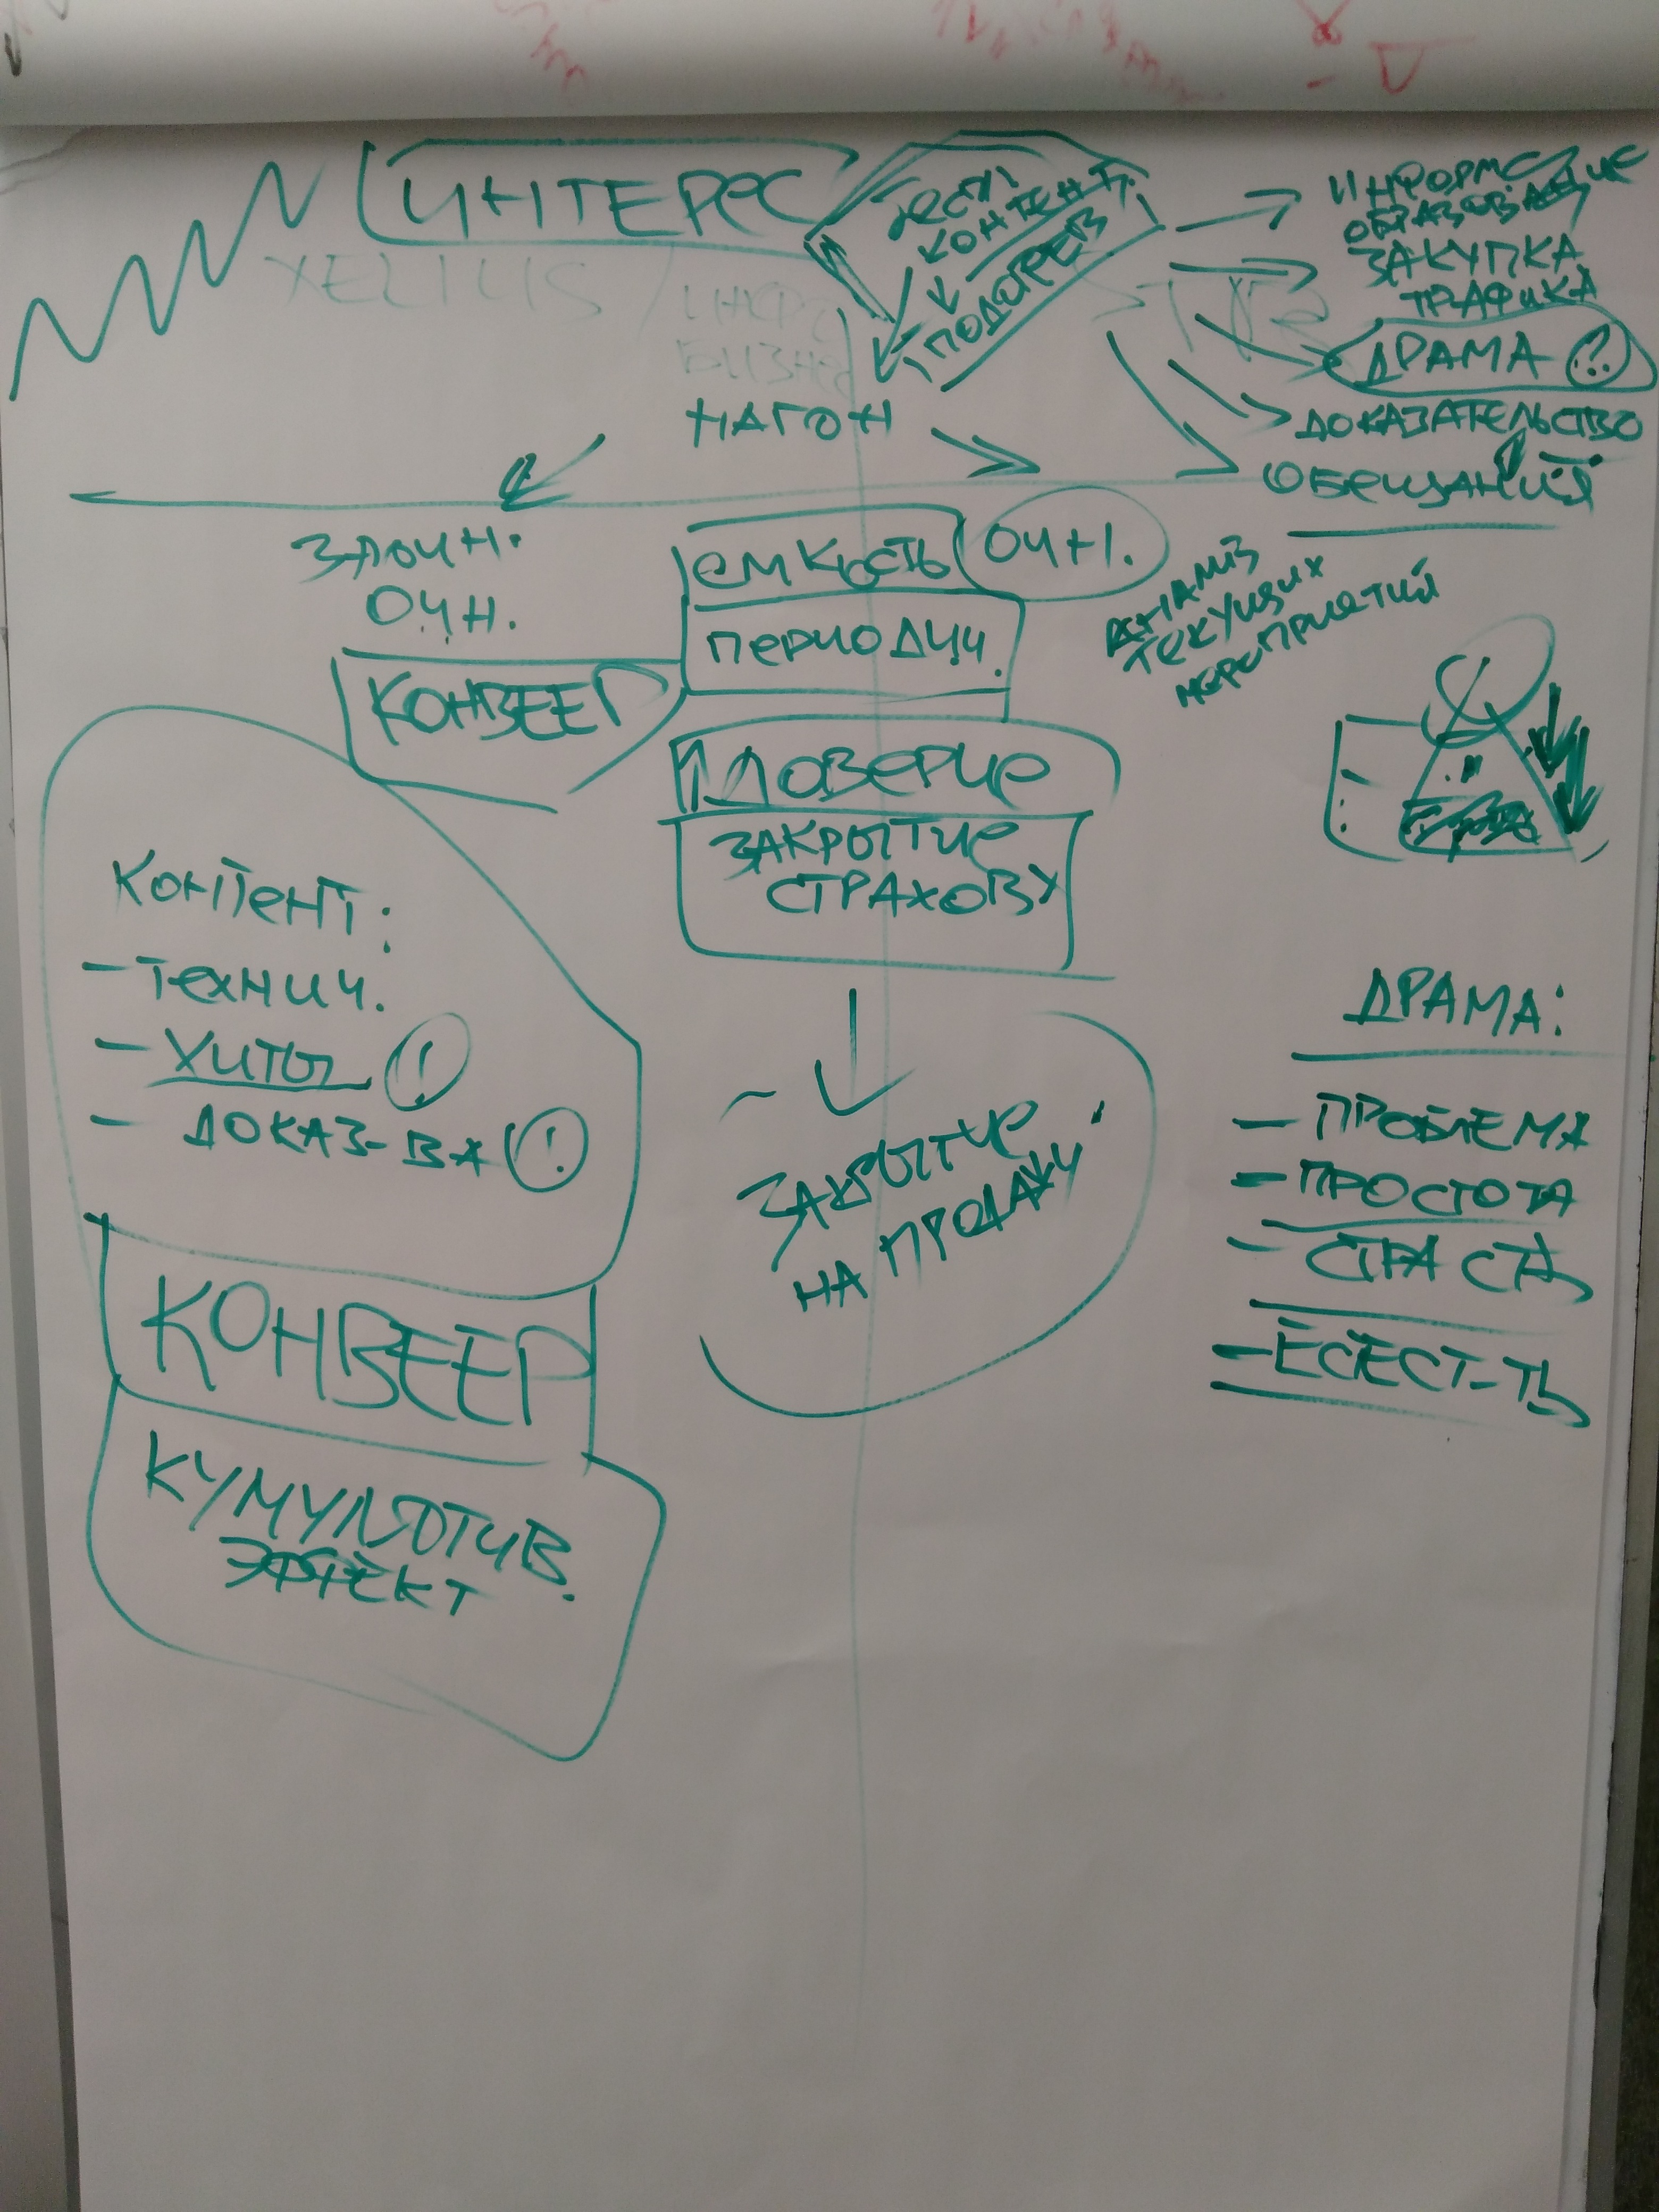 ИНТЕРЕС
БЕСПЛ.
КОНТЕНТ.
ПОДОГРЕВ
ЗАКУПКА
ТРАФИКА
ДРАМА !
ДОКАЗАТЕЛЬСТВО
ОБЕЩАНИЙ
XELIUS /
ИНФО
БИЗНЕС
НАГОН
ЗАОЧН.
ОЧН.
КОНВЕЕР
ЕМКОСТЬ ОЧН.
ПЕРИОДИЧ.
АНАЛИЗ
ТЕКУЩИХ
МЕРОПРИЯТИЙ
ДОВЕРИЕ
ЗАКРЫТИЕ
СТРАХОВ
ЗАКРЫТИЕ
НА ПРОДАЖИ
КОНТЕНТ:
- ТЕХНИЧ.
- ХИТЫ !
- ДОКАЗ-ВА !
КОНВЕЕР
КУМУЛЯТИВ.
ЭФФЕКТ
ДРАМА:
- ПРОБЛЕМА
- ПРОСТОТА
- СТРАСТЬ
- ЕСТЕСТ-ТЬ